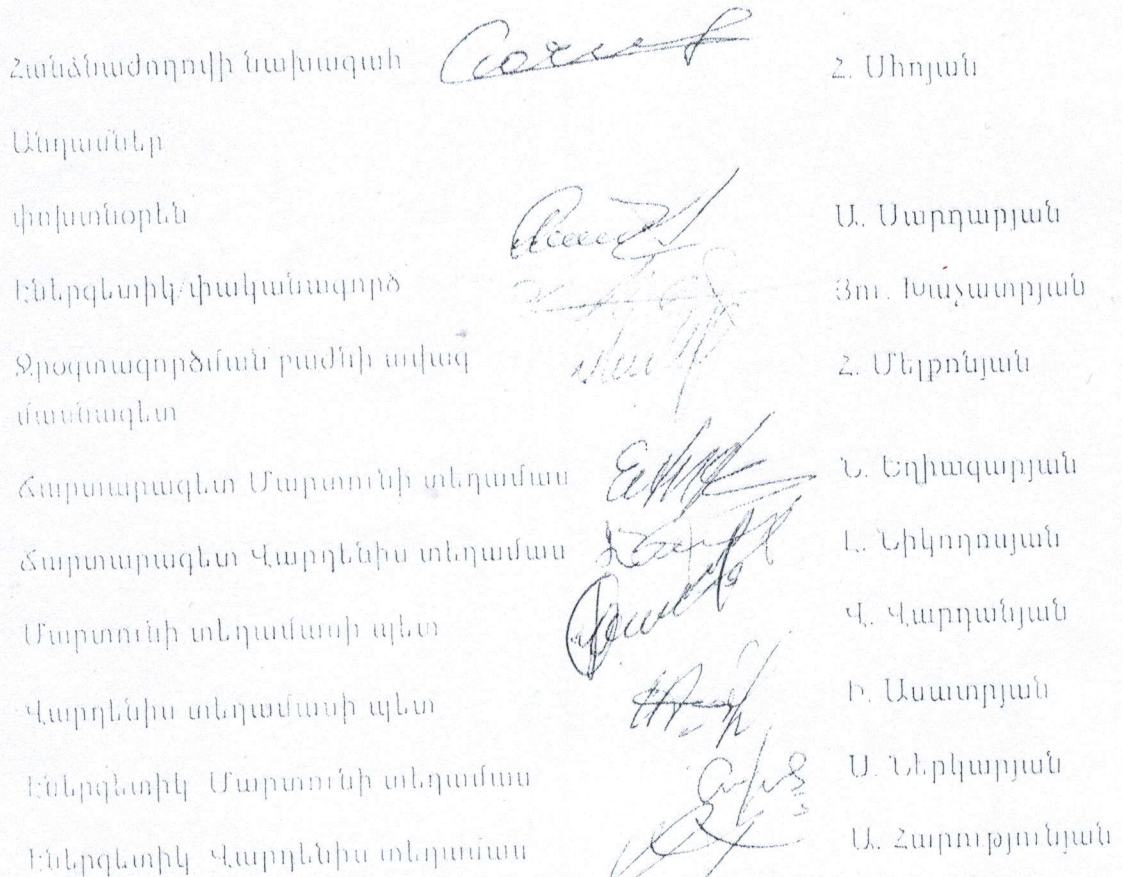 Հանձնաժողովի նախագահ Հ. Սիոյան
Անդամներ
փոխտնօրեն Ա. Սարդարյան
Էներգետիկ/փականագործ Յու. Խաչատրյան
Ջրօգտագործման բաժնի ավագ Հ. Մելքոնյան
մասնագետ
Ճարտարագետ Մարտունի տեղամաս Ն. Եղիազարյան
Ճարտարագետ Վարդենիս տեղամաս Լ. Նիկողոսյան
Մարտունի տեղամասի պետ Վ. Վարդանյան
Վարդենիս տեղամասի պետ Ի. Ասատրյան
Էներգետիկ Մարտունի տեղամաս Ս. Ներկարյան
Էներգետիկ Վարդենիս տեղամաս Ա. Հարությունյան